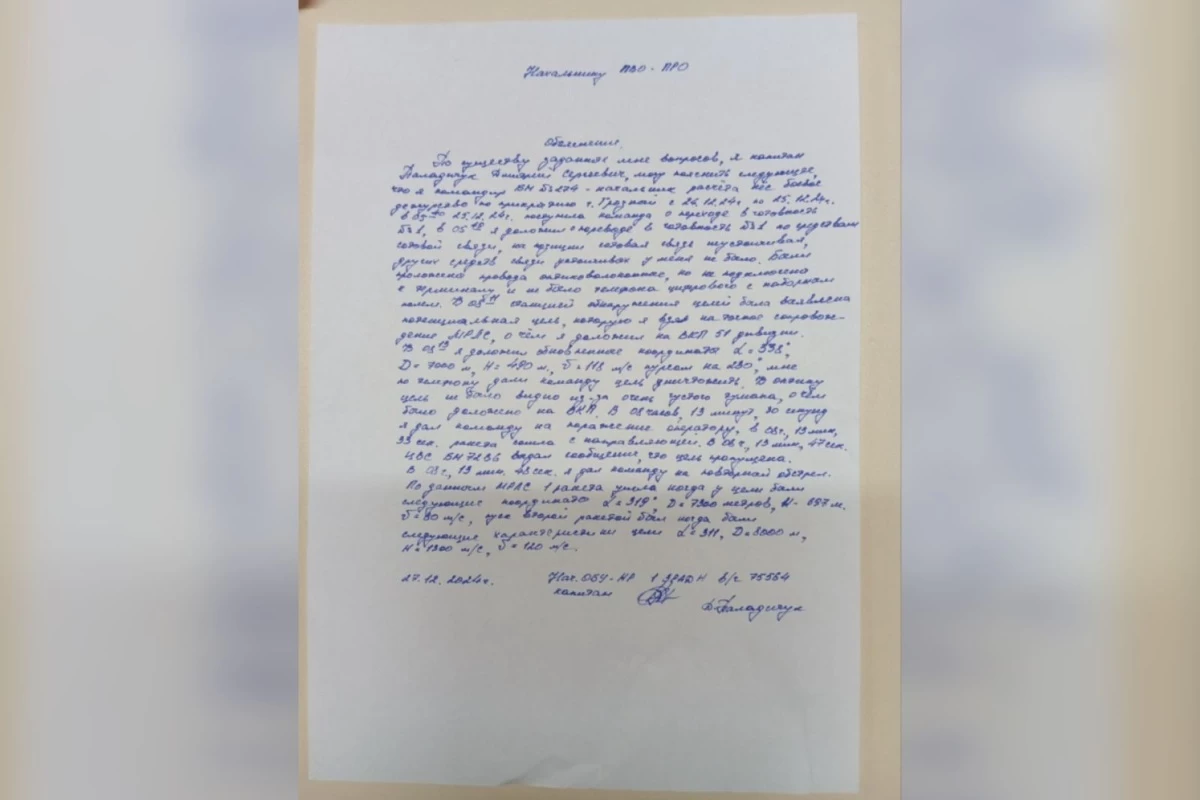 Начальнику ПВО - ПРО
Объяснение.
По существу заданных мне вопросов, я капитан
Паладичук Дмитрий Сергеевич, могу пояснить следующее,
что я командир БМ - начальник расчёта нёс боевое
дежурство по прикрытию г. Грозный с 24.12.24г по 25.12.24г.
25.12.24г. поступила команда о переходе в готовность
№1, в 05 я доложил о переводе в готовность №1 по средствам
сотовой связи, на позиции сотовая связь неустойчивая,
других средств связи устойчивых у меня не было. Были
проложены провода оптиковолоконные, но не подключены
к терминалу и не было телефона цифрового с наборным
полем. В 08 11 станцией обнаружения целей была выявлена
потенциальная цель, которую я взял на точное сопровож-
дение МРЛС, о чём я доложил на ВКП 51 дивизии.
В 08 13 я доложил обновленные координаты α = 338°,
D = 7000 м, H = 490 м, υ = 118 м/с курсом на 280°, мне
по телефону дали команду цель уничтожить. В оптику
цель не было видно из-за очень густого тумана, о чём
было доложено на ВКП. В 08 часов, 13 минут, 30 секунд
я дал команду на поражение оператору, в 08ч, 13 мин,
33 сек. ракета сошла с направляющей. В 08ч, 13 мин, 47 сек.
ЦВС БМ 72В6 выдал сообщение, что цель пропущена.
В 08ч, 13 мин. 48 сек. я дал команду на повторный обстрел.
По данным МРЛС 1 ракета ушла когда у цели были
следующие координаты α = 319°, D = 7300 метров, H - 897 м.
υ = 90 м/с, пуск второй ракетой был когда были
следующие характеристики цели α = 311, D = 8000 м,
H = 1300 м/с, υ = 120 м/с.
27.12.2024г. Нач. ОБУ - НР 1 ЗРАДН в/ч 75564
капитан
Д. Паладичук